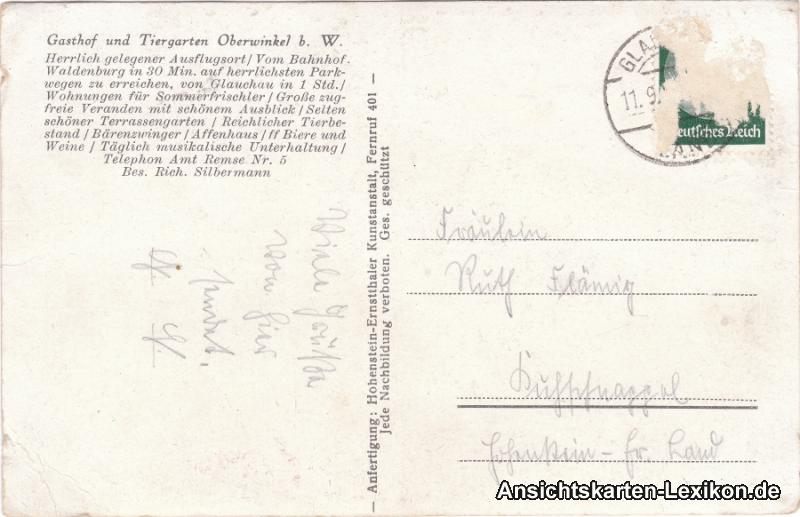 Gasthof und Tiergarten Oberwinkel b. W.
Herrlich gelegener Ausflugsort / Vom Bahnhof
Waldenburg in 30 Min. auf herrlichsten Park-
wegen zu erreichen, von Glauchau in 1 Std. /
Wohnungen für Sommerfrischler / Große zug-
freie Veranden mit schönem Ausblick / Selten
schöner Terrassengarten / Reichlicher Tierbe-
stand / Bärenzwinger / Affenhaus / ff Biere und
Weine / Täglich musikalische Unterhaltung /
Telephon Amt Remse Nr. 5
Bes. Rich. Silbermann
Viele Grüße
von hier
sendet.
Anfertigung: Hohenstein-Ernstthaler Kunstanstalt, Fernruf 401 —
Jede Nachbildung verboten. Ges. geschützt
11.9
Deutsches Reich
Fräulein
Ruth Flämig
Kuhschnappel
Hohenstein-Er. Land
Ansichtskarten-Lexikon.de